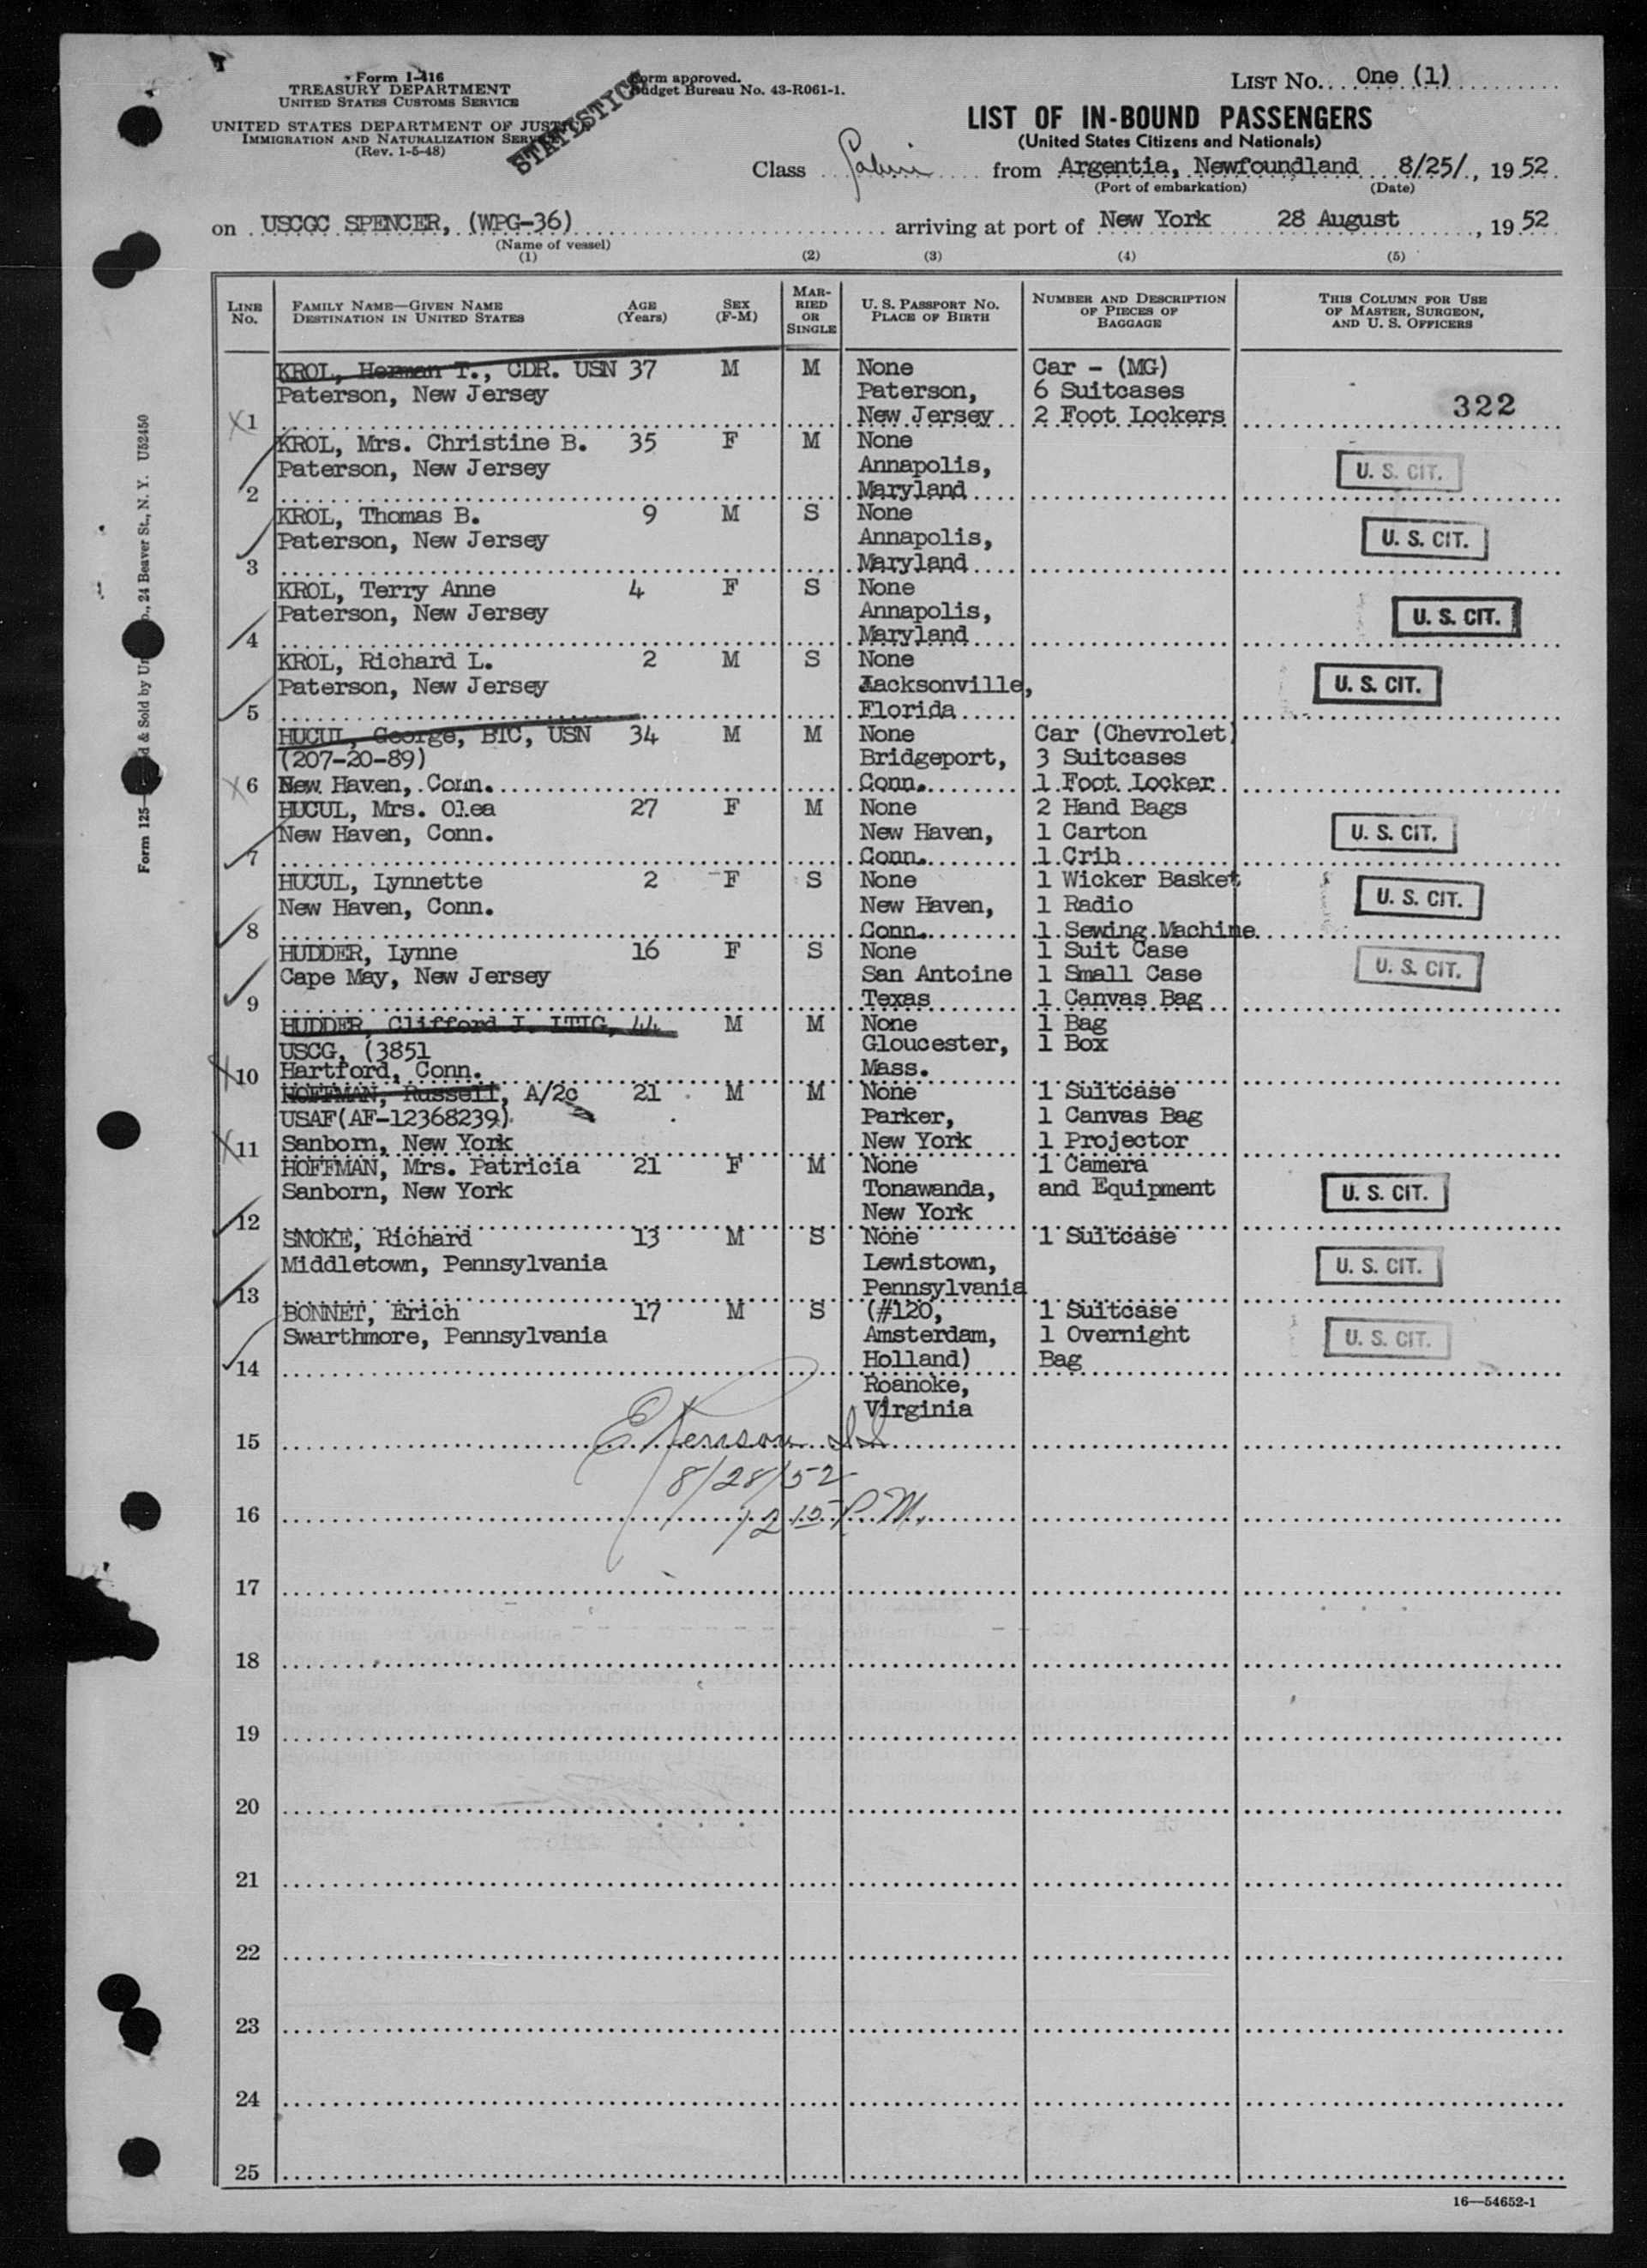 Form I-416
TREASURY DEPARTMENT
UNITED STATES CUSTOMS SERVICE
UNITED STATES DEPARTMENT OF JUSTICE
IMMIGRATION AND NATURALIZATION SERVICE
(Rev. 1-5-48)
STATISTICS
Form approved.
Budget Bureau No. 43-R061-1.
LIST No. One (1)
LIST OF IN-BOUND PASSENGERS
(United States Citizens and Nationals)
Class Cabin from Argentia, Newfoundland 8/25/, 1952
(Port of embarkation) (Date)
on USCGC SPENCER, (WPG-36) arriving at port of New York 28 August, 1952
(Name of vessel)
(1) (2) (3) (4) (5)
LINE No. FAMILY NAME—GIVEN NAME DESTINATION IN UNITED STATES AGE (Years) SEX (F-M) MARRIED OR SINGLE U. S. PASSPORT NO. PLACE OF BIRTH NUMBER AND DESCRIPTION OF PIECES OF BAGGAGE THIS COLUMN FOR USE OF MASTER, SURGEON, AND U. S. OFFICERS
KROL, Herman T., CDR. USN 37 M M None Car - (MG)
Paterson, New Jersey Paterson, 6 Suitcases
1 New Jersey 2 Foot Lockers 322
KROL, Mrs. Christine B. 35 F M None
Paterson, New Jersey Annapolis, U. S. CIT.
2 Maryland
KROL, Thomas B. 9 M S None
Paterson, New Jersey Annapolis, U. S. CIT.
3 Maryland
KROL, Terry Anne 4 F S None
Paterson, New Jersey Annapolis, U. S. CIT.
4 Maryland
KROL, Richard L. 2 M S None
Paterson, New Jersey Jacksonville, U. S. CIT.
5 Florida
HUCUL, George, BTC, USN 34 M M None Car (Chevrolet)
(207-20-89) Bridgeport, 3 Suitcases
6 New Haven, Conn. Conn. 1 Foot Locker
HUCUL, Mrs. Olea 27 F M None 2 Hand Bags
New Haven, Conn. New Haven, 1 Carton U. S. CIT.
7 Conn. 1 Crib
HUCUL, Lynnette 2 F S None 1 Wicker Basket
New Haven, Conn. New Haven, 1 Radio U. S. CIT.
8 Conn. 1 Sewing Machine
HUDDER, Lynne 16 F S None 1 Suit Case
Cape May, New Jersey San Antoine 1 Small Case U. S. CIT.
9 Texas 1 Canvas Bag
HUDDER, Clifford J. LTJG, 44 M M None 1 Bag
USCG, (3851 Gloucester, 1 Box
10 Hartford, Conn. Mass.
HOFFMAN, Russell, A/2c 21 M M None 1 Suitcase
USAF(AF-12368239) Parker, 1 Canvas Bag
11 Sanborn, New York New York 1 Projector
HOFFMAN, Mrs. Patricia 21 F M None 1 Camera
Sanborn, New York Tonawanda, and Equipment U. S. CIT.
12 New York
SNOKE, Richard 13 M S None 1 Suitcase
Middletown, Pennsylvania Lewistown, U. S. CIT.
13 Pennsylvania
BONNET, Erich 17 M S (#120, 1 Suitcase
Swarthmore, Pennsylvania Amsterdam, 1 Overnight U. S. CIT.
14 Holland) Bag
Roanoke,
Virginia
15
8/28/52
16 12 15 P.M.
17
18
19
20
21
22
23
24
25
16—54652-1
Form 125— & Sold by , 24 Beaver St., N. Y. U52450